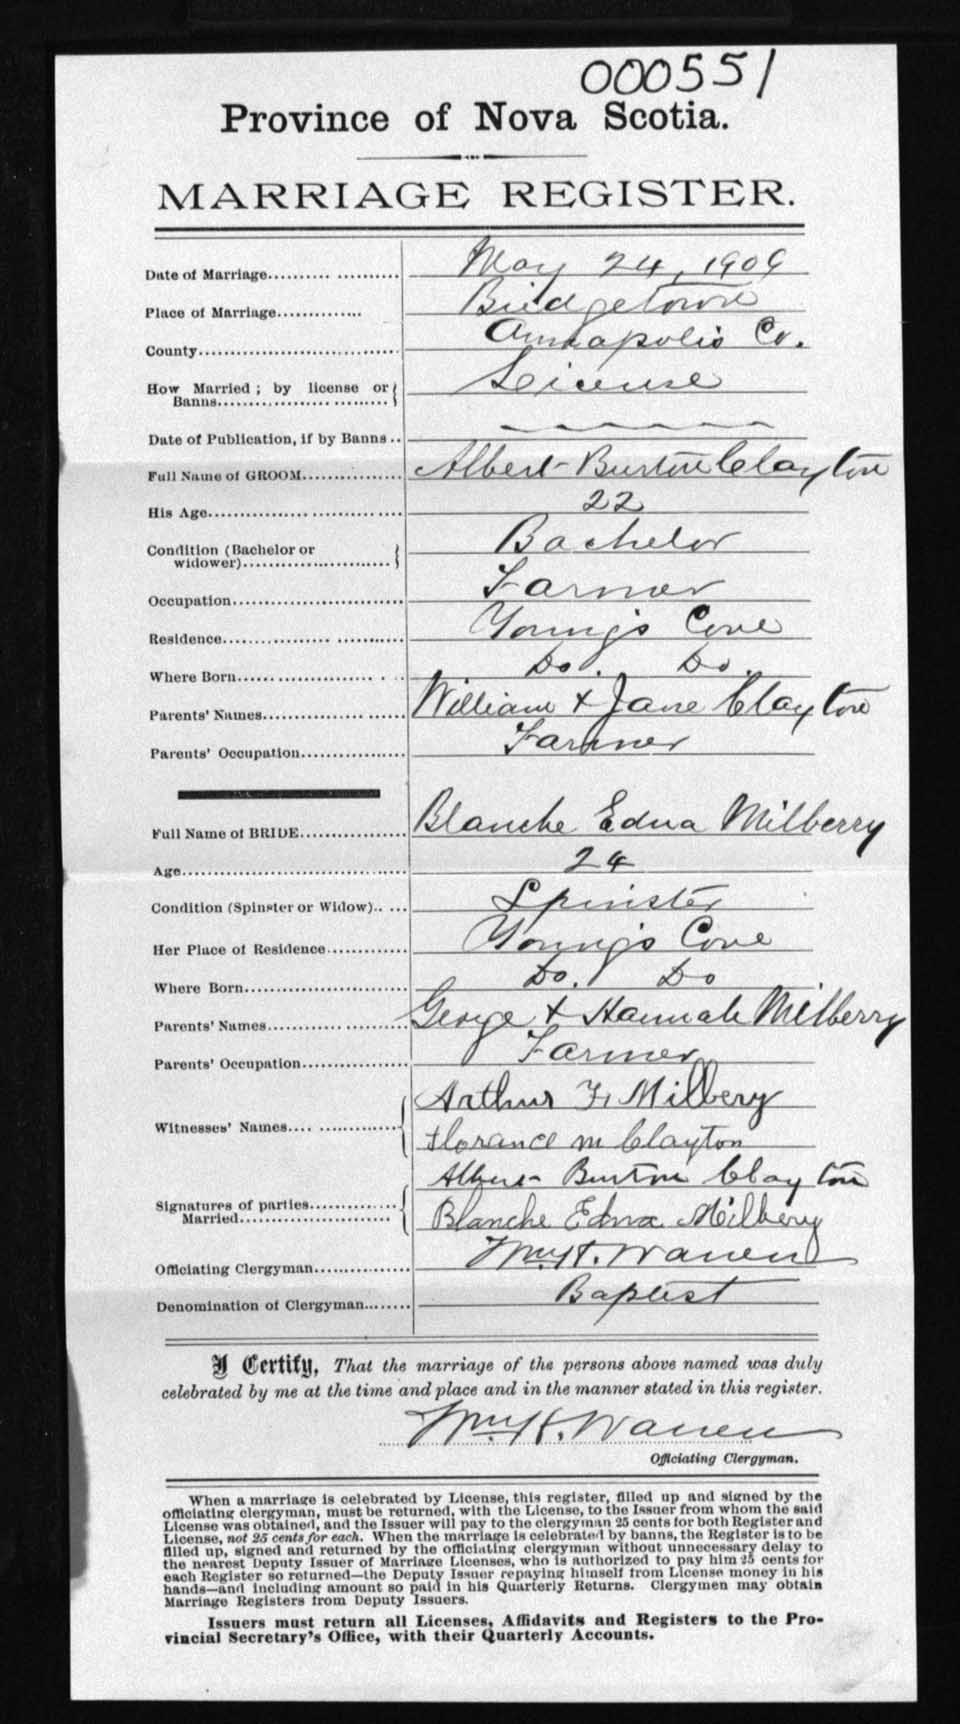 000551
Province of Nova Scotia.
MARRIAGE REGISTER.
Date of Marriage.................... May 24, 1909
Place of Marriage.............. Bridgetown
County................................. Annapolis Co.
How Married ; by license or
Banns................................. License
Date of Publication, if by Banns..
Full Name of GROOM................. Albert Burton Clayton
His Age................................. 22
Condition (Bachelor or
widower)............................. Bachelor
Occupation............................. Farmer
Residence............................. Young's Cove
Where Born............................. Do. Do.
Parents' Names....................... William & Jane Clayton
Parents' Occupation................. Farmer
Full Name of BRIDE................... Blanche Edna Milberry
Age....................................... 24
Condition (Spinster or Widow)..... Spinster
Her Place of Residence............. Young's Cove
Where Born............................. Do. Do
Parents' Names....................... George & Hannah Milberry
Parents' Occupation................. Farmer
Witnesses' Names.................... Arthur F. Milbery
Florance M Clayton
Signatures of parties............... Albert Burton Clayton
Married................................. Blanche Edna Milbery
Officiating Clergyman................ Wm. H. Warren
Denomination of Clergyman........ Baptist
I Certify, That the marriage of the persons above named was duly
celebrated by me at the time and place and in the manner stated in this register.
Wm. H. Warren
Officiating Clergyman.
When a marriage is celebrated by License, this register, filled up and signed by the
officiating clergyman, must be returned, with the License, to the Issuer from whom the said
License was obtained, and the Issuer will pay to the clergyman 25 cents for both Register and
License, not 25 cents for each. When the marriage is celebrated by banns, the Register is to be
filled up, signed and returned by the officiating clergyman without unnecessary delay to
the nearest Deputy Issuer of Marriage Licenses, who is authorized to pay him 25 cents for
each Register so returned—the Deputy Issuer repaying himself from License money in his
hands—and including amount so paid in his Quarterly Returns. Clergymen may obtain
Marriage Registers from Deputy Issuers.
Issuers must return all Licenses, Affidavits and Registers to the Pro-
vincial Secretary's Office, with their Quarterly Accounts.